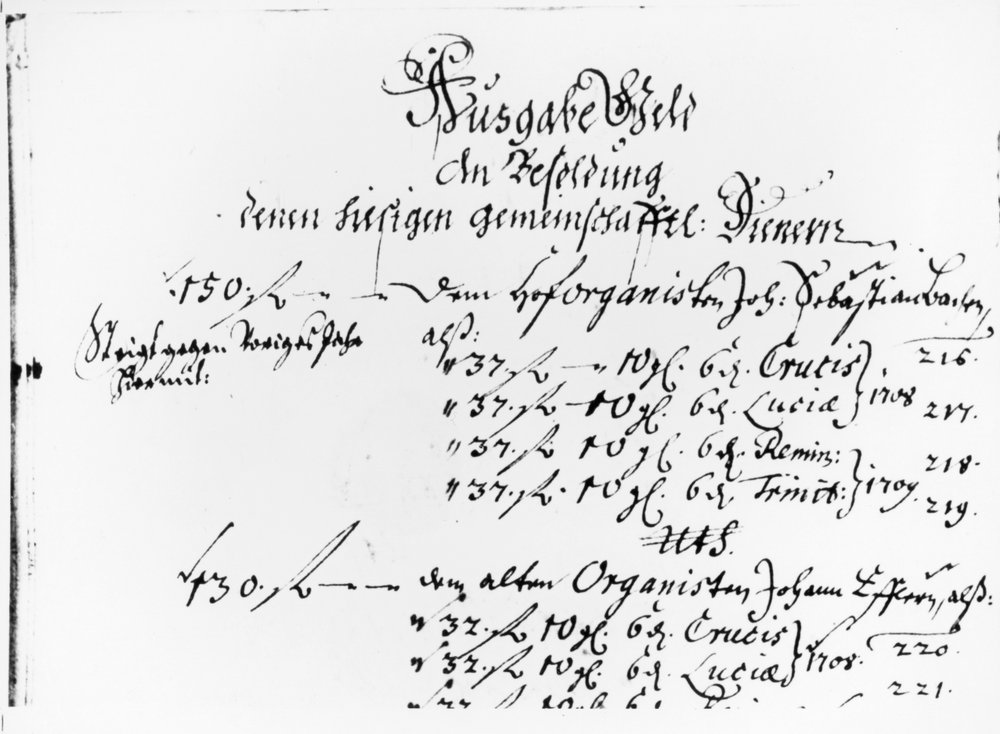 Ausgabe Geld
An Besoldung
denen hiesigen gemeinschafftl: Dienern
150. fl — — dem Hoforganisten Joh: Sebastian Bachen,
Steigt gegen voriges Jahr
alß:
" 37. fl — " 10 gl. 6 ₰. Crucis
216.
" 37. fl — 10 gl. 6 ₰. Luciæ } 1708
217.
" 37. fl. 10 gl. 6 ₰. Remin:
218.
" 37. fl. 10 gl. 6 ₰. Trinit: } 1709.
219.
uts.
130. fl — — dem alten Organisten Johann Efflern, alß:
" 32. fl 10 gl. 6 ₰. Crucis
220.
" 32. fl 10 gl. 6 ₰. Luciæ } 1708.
221.